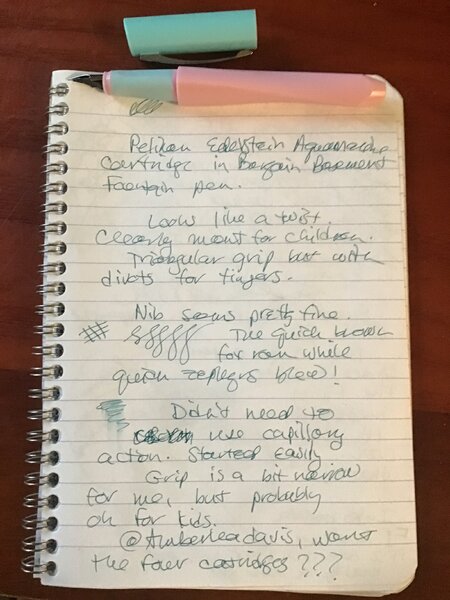 Pelikan Edelstein Aquamarine
cartridge in Bargain Basement
Fountain pen.
Looks like a twist.
Clearly meant for children.
Triangular grip but with
divots for fingers.
Nib seems pretty fine.
The quick brown
fox ran while
quick zephyrs blew!
Didn't need to
use capillary
action. Started easily
Grip is a bit narrow
for me, but probably
ok for kids.
@Amberleadavis, want
the four cartridges???